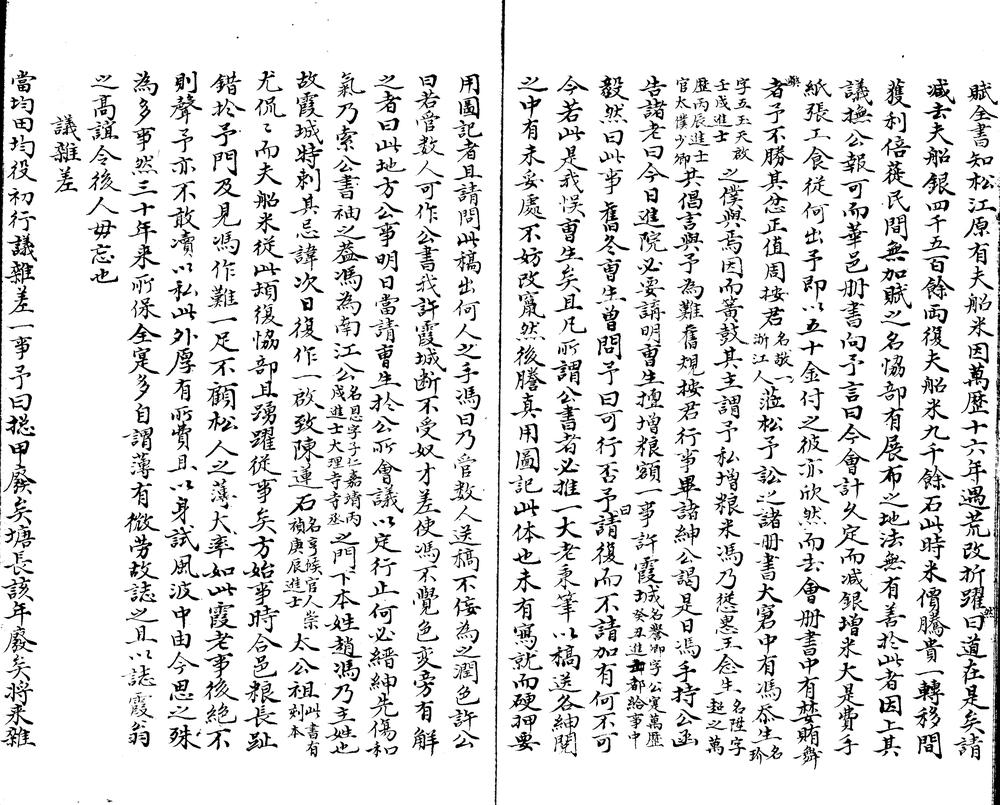 賦全書知松江原有夫船米因萬歷十六年遇荒改折躍曰道在是矣請
減去夫船銀四千五百餘兩復夫船米九千餘石此時米價騰貴一轉移間
獲利倍蓰民間無加賦之名恊部有展布之地法無有善於此者因上其
議撫公報可而華邑册書向予言曰今會計久定而减銀增米大是費手
紙張工食從何出予即以五十金付之彼亦欣然而去會册書中有婪賄
者予不勝其忿正值周按君名敬一浙江人蒞松予訟之諸册書大窘中有馮忝生名玠
字五玉天啟壬戌進士之僕與焉因而簧鼓其主謂予私增粮米馮乃慫恿王念生名陞字超之萬
歷丙辰進士官太僕少卿共倡言與予為難舊規按君行事畢諸紳公謁是日馮手持公函
告諸老曰今日進院必要講明曹生擅增粮額一事許霞城名譽卿字公寔萬歷癸丑進士都給事中
毅然曰此事舊冬曹生曾問予曰可行否予曰請復而不請加有何不可
今若此是我悞曹生矣且凡所謂公書者必推一大老秉筆以稿送各紳閱
之中有未妥處不妨改竄然後謄真用圖記此体也未有寫就而硬押要
用圖記者且請問此稿出何人之手馮曰乃管数人送稿不佞為之潤色許公
曰若管数人可作公書我許霞城断不受奴才差使馮不覺色变旁有解
之者曰此地方公事明日當請曹生於公所會議以定行止何必縉紳先傷和
氣乃索公書袖之葢馮為南江公名恩字子仁嘉靖丙戌進士大理寺寺丞之門下本姓趙馮乃主姓也
故霞城特刺其忌諱次日復作一啟致陳蓮石名亨候官人崇禎庚辰進士太公祖此書有刻本
尤侃〻而夫船米從此頡復恊部且踴躍從事矣方始事時合邑粮長趾
錯於予門及見馮作難一足不顧松人之薄大率如此霞老事後絶不
則聲予亦不敢凟以私此外厚有所費且以身試風波中由今思之殊
為多事然三十年來所保全寔多自謂薄有微劳故誌之且以誌霞翁
之高誼令後人毋忘也
議雜差
當均田均役初行議雜差一事予曰捴甲廢矣塘長該年廢矣將來雜